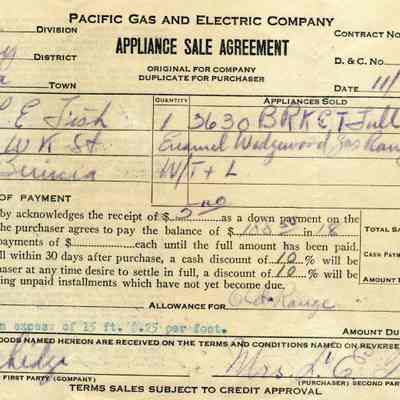 PACIFIC GAS AND ELECTRIC COMPANY
DIVISION
APPLIANCE SALE AGREEMENT
CONTRACT NO
DISTRICT
ORIGINAL FOR COMPANY
DUPLICATE FOR PURCHASER
D. & C. NO.
TOWN
DATE 11/
QUANTITY
APPLIANCES SOLD
E Fish
1 3630 BRKET Full
W K St.
Enamel Wedgewood Gas Rang
Benicia
W/T + L
OF PAYMENT
by acknowledges the receipt of $ 5 no as a down payment on the
he purchaser agrees to pay the balance of $ in 18
TOTAL SA
payments of $ each until the full amount has been paid.
ll within 30 days after purchase, a cash discount of 10 % will be
CASH PAYM
haser at any time desire to settle in full, a discount of 10 % will be
ing unpaid installments which have not yet become due.
AMOUNT
ALLOWANCE FOR
Old Range
n excess of 15 ft. $.25 per foot.
AMOUNT DU
OODS NAMED HEREON ARE RECEIVED ON THE TERMS AND CONDITIONS NAMED ON REVERS
Mrs. L. E.
FIRST PARTY (COMPANY)
(PURCHASER) SECOND PART
TERMS SALES SUBJECT TO CREDIT APPROVAL